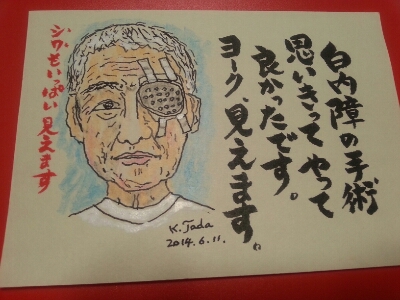 白内障の手術
思いきってやって
良かったです。
ヨーク、見えます。
シワもいっぱい見えます
K. Tada
2014.6.11.